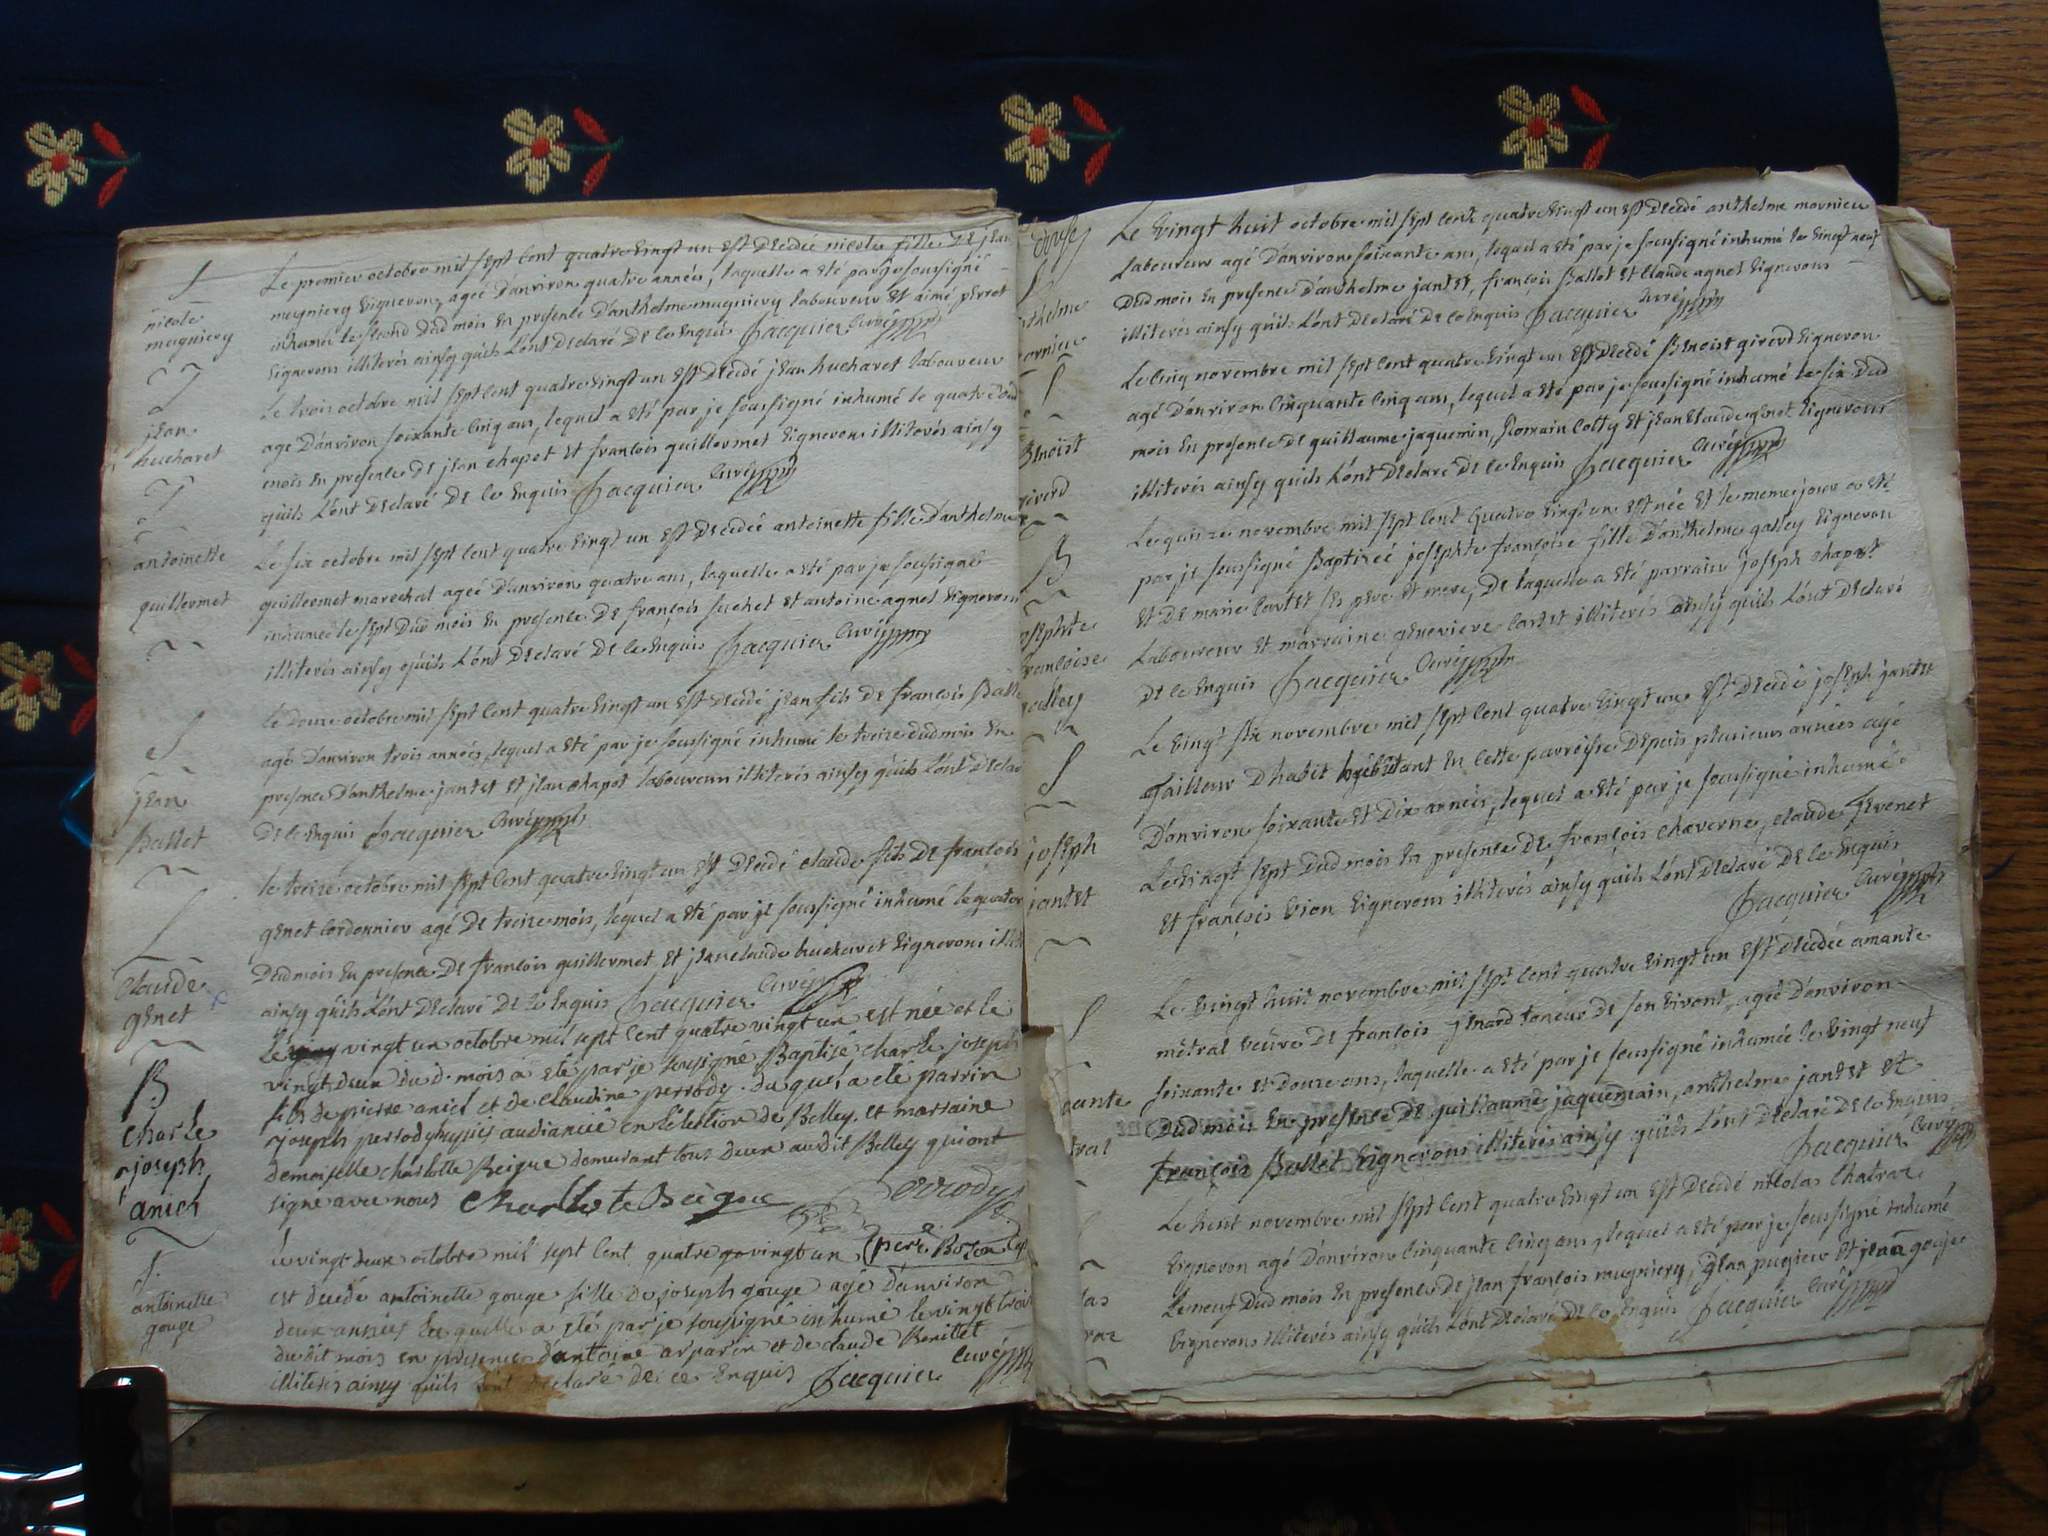 S
nicole
mugniery
Le premier octobre mil sept cent quatre vingt un est decedée nicole fille de jean
mugniery vigneron, ageé d'anviron quatre années, laquelle a eté par je soussigné
inhumée le second dud mois en presence d'anthelme mugniery laboureur et aimé perret
vignerons illiterés ainsy quils l'ont declaré de ce enquis Jacquier curé
S
jean
hucharet
Le trois octobre mil sept cent quatre vingt un est decedé jean hucharet laboureur
agé d'anviron soixante cinq ans, lequel a eté par je soussigné inhumé le quatre dud
mois en presence de jean chapot et françois guillermet vignerons illiterés ainsy
quils l'ont declaré de ce enquis Jacquier curé
S
antoinette
guillermet
Le six octobre mil sept cent quatre vingt un est decedée antoinette fille d'anthelme
guillermet marechal ageé d'anviron quatre ans, laquelle a eté par je soussigné
inhumée le sept dud mois en presence de françois suchet et antoine agnet vignerons
illiterés ainsy quils l'ont declaré de ce enquis Jacquier curé
S
jean
Ballet
Le douze octobre mil sept cent quatre vingt un est decedé jean fils de françois Ballet
agé d'anviron trois années, lequel a eté par je soussigné inhumé le treize dud mois en
presence d'anthelme jantet et jean chapot laboureurs illiterés ainsy quils l'ont declaré
de ce enquis Jacquier curé
S
claude
genet
le treize octobre mil sept cent quatre vingt un est decedé claude fils de françois
genet cordonnier agé de treize mois, lequel a eté par je soussigné inhumé le quator
dud mois en presence de françois guillermet et jean claude hucharet vignerons illit
ainsy quils l'ont declaré de ce enquis Jacquier curé
B
charle
joseph
anich
Le vingt un octobre mil sept cent quatre vingt un est née et le
vingt deux du d. mois a eté par je soussigné Baptisé charle joseph
fils de pierre anich et de claudine perrody. du quel a eté parrin
joseph perrody huissier audiancié en l'élection de Belley. et marraine
demoiselle charlotte Beigue demurant tous deux audit Belley qui ont
signé avec nous Charlotte Beigue perrody
père Bozon
S.
antoinette
gouge
Le vingt deux octobre mil sept cent quatre vingt un
est decedé antoinette gouge fille de joseph gouge age d'anviron
deux années la quelle a eté par je soussigné inhumé le vingt trois
du dit mois en presence d'antoine arparin et de claude Benitet
illiterés ainsy quils l'ont declaré de ce enquis Jacquier curé
S
anthelme
mornieu
Le vingt huit octobre mil sept cent quatre vingt un est decedé anthelme mornieu
laboureur agé d'anviron soixante ans, lequel a eté par je soussigné inhumé le vingt neuf
dud mois en presence d'anthelme jantet, françois Ballet et claude agnet vignerons
illiterés ainsy quils l'ont declaré de ce enquis Jacquier curé
S
Benoist
girerd
Le cinq novembre mil sept cent quatre vingt un est decedé Benoist girerd vigneron
agé d'anviron cinquante cinq ans, lequel a eté par je soussigné inhumé le six dud
mois en presence de guillaume jaquemin, Romain Colty et jean claude genet vignerons
illiterés ainsy quils l'ont declaré de ce enquis Jacquier curé
B
josephte
françoise
galley
Le quinze novembre mil sept cent quatre vingt un est née et le meme jour a eté
par je soussigné Baptizeé josephte françoise fille d'anthelme galley vigneron
et de marie cartet ses pere et mere, de laquelle a eté parrain joseph chapot
laboureur et marraine genevieve cartet illiterés ainsy quils l'ont declaré
de ce enquis Jacquier curé
S
joseph
jantet
Le vingt six novembre mil sept cent quatre vingt un est decedé joseph jantet
Tailleur d'habit habitant en cette parroisse depuis plusieurs années agé
d'anviron soixante et dix années, lequel a eté par je soussigné inhumé
le vingt sept dud mois en presence de françois chaverne, claude Tevenet
et françois vion vignerons illiterés ainsy quils l'ont declaré de ce enquis
Jacquier curé
S
Le vingt huit novembre mil sept cent quatre vingt un est decedée amante
métral veuve de françois jenard taneur de son vivant, ageé d'anviron
soixante et douze ans, laquelle a eté par je soussigné inhumée le vingt neuf
dud mois en presence de guillaume jaquemain, anthelme jantet et
françois Ballet vignerons illiterés ainsy quils l'ont declaré de ce enquis
Jacquier curé
Le huit novembre mil sept cent quatre vingt un est decedé nicolas Chatraz
vigneron agé d'anviron cinquante cinq ans, lequel a eté par je soussigné inhumé
le neuf dud mois en presence de jean françois mugniery, jean pugieu et jean gouge
vignerons illiterés ainsy quils l'ont declaré de ce enquis Jacquier curé